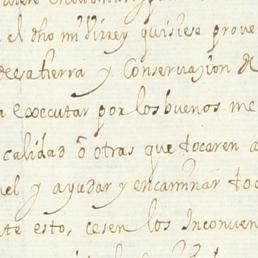 el dho mi Virrey quisiese prove
desa tierra y Conservaçion de
a execcutar por los buenos me
calidad ô otras que tocaren a
uel y ayudar y encaminar to
te esto, cesen los Inconuen